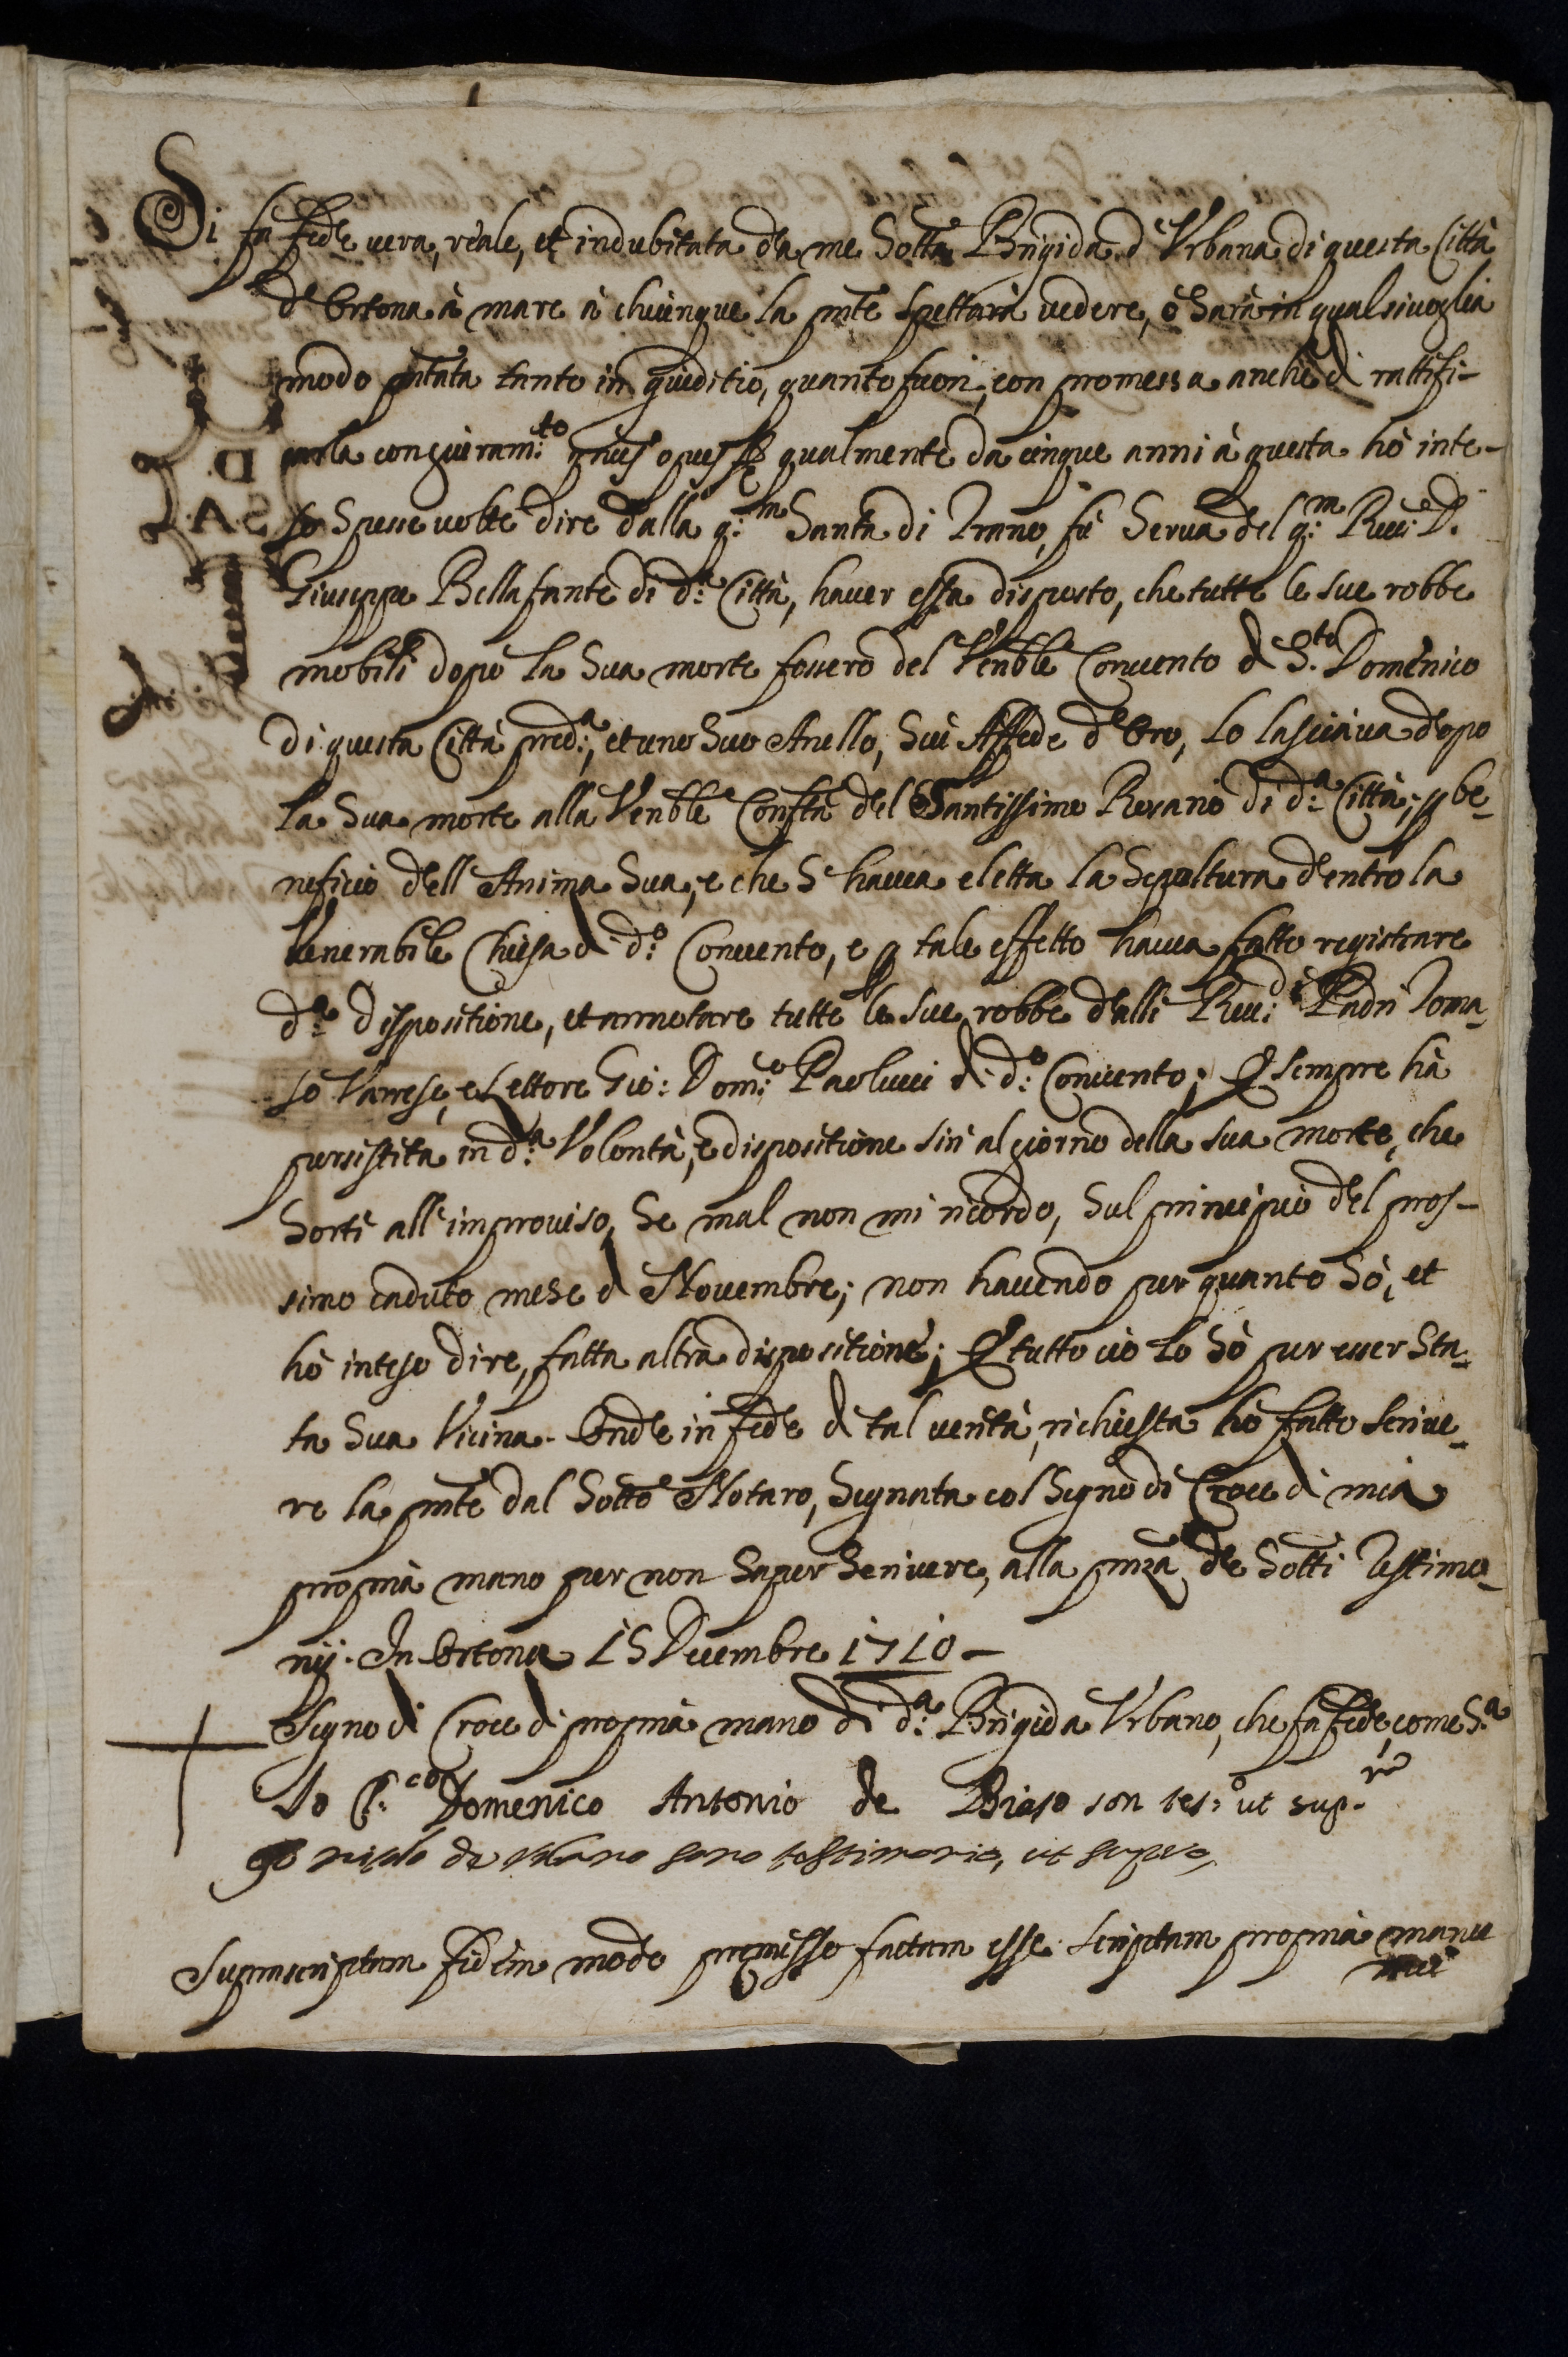 Si fa fede vera, reale, et indubitata da me Sotta Brigida d'Vrbana di questa Città
d'Ortona à mare à chiunque la pnte spettarà vedere, ò sarà in qualsivoglia
modo pntata tanto in giuditio, quanto fuori, con promessa anche di rattifi-
carla con giuram:to qualmente da cinque anni à questa hò inte-
so spesse volte dire dalla q:m Santa di fù Serua del q:m Reu: D.
Giuseppe Bellafante di d:a Città, hauer essa disposto, che tutte le sue robbe
mobili dopo la sua morte fossero del Venble Conuento di S.to Domenico
di questa Città pred:a, et uno suo Anello, Lo lasciaua dopo
la sua morte alla Venble Confta del Santissimo Rosario di d:a Città; p be-
neficio dell'Anima sua; e che S'hauea eletta la Sepoltura dentro la
Venerabile Chiesa di d:o Conuento, e p tale effetto hauea fatto registrare
d:a dispositione, et annotare tutte le sue robbe dalli Reu:di Padri Toma-
so Varese, e Lettore Gio: Dom:co Paolucci di d:o Conuento; E sempre hà
persistita in d:a Volontà, e dispositione sin' al giorno della sua morte, che
sortì all'improuiso, se mal non mi ricordo, sul principio del pros-
simo caduto mese di Nouembre; non hauendo per quanto sò, et
hò inteso dire, fatta altra dispositione; E tutto ciò lo sò per esser sta-
ta sua Vicina. Onde in fede di tal verità, richiesta hò fatto scriue-
re la pnte dal Sotto Notaro, segnata col segno di Croce di mia
propria mano per non saper scriuere, alla pnza de Sotti Testimo-
nij. In Ortona 15 Decembre 1710 -
Segno di Croce di propria mano di d:a Brigida Vrbano, che fà fede, come S:a
Io Domenico Antonio de Biaso son tes:o ut sup:ra
Io sono testimonio, ut supra
Suprascriptam fidem modo premisso factam esse scriptam propria manu
mei